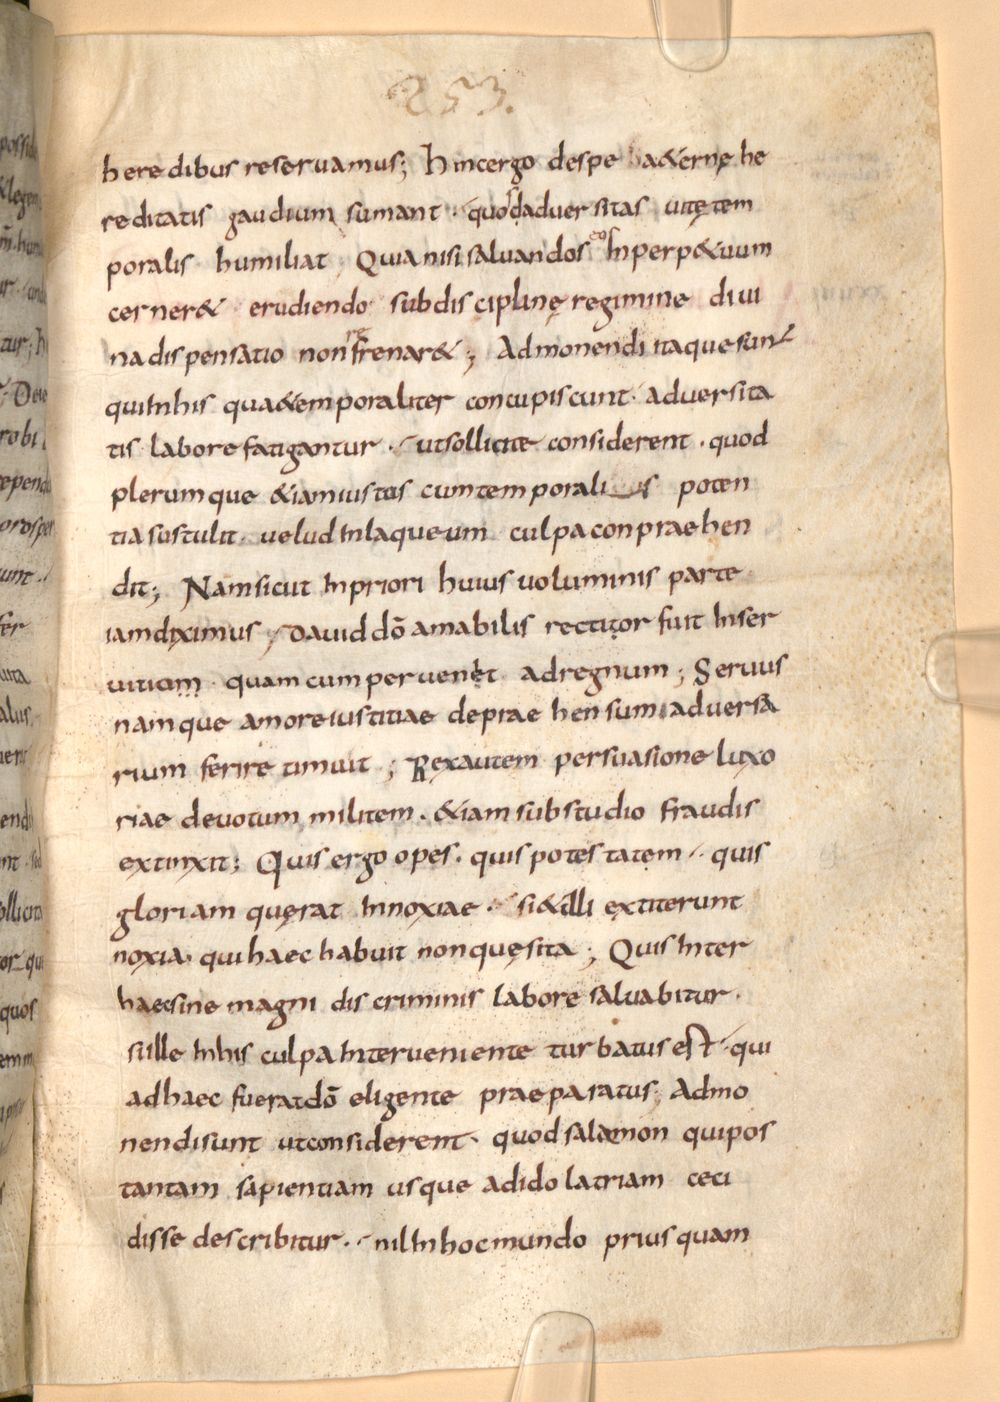 253.
heredibus reseruamus; hincergo despe &aeternę he
reditatis gaudium sumant · quosdaduersitas uitętem
poralis humiliat; Quia nisi saluandos eos Inperp&uum
cerner& erudiendo sub disciplinę regimine diui
na dispensatio non refrenar&; Admonendi itaque sunt
qui Inhis quae temporaliter concupiscunt · aduersita
tis labore fatigantur · ut sollicite considerent · quod
plerumque &iam iustos cum temporalis poten
tia sustulit · uelud Inlaqueum culpa conpraehen
dit; Nam sicut Inpriori huius uoluminis parte
iam diximus, dauid dō amabilis rectior fuit Inser
uitium · quam cum peruenit ad regnum; Seruus
namque amore iustitiae depraehensum aduersa
rium ferire timuit; Rex autem persuasione luxo
riae deuotum militem · &iam sub studio fraudis
extinxit; Quis ergo opes · quis potestatem · quis
gloriam quęrat Innoxiae · si &illi extiterunt
noxia · qui haec habuit non quęsita; Quis Inter
haec sine magni discriminis labore saluabitur ·
si ille Inhis culpa Interueniente turbatus est · qui
ad haec fuerat dō eligente praeparatus; Admo
nendi sunt ut considerent · quod salamon qui pos
tantam sapientiam usque ad idolatriam ceci
disse describitur · nil Inhoc mundo priusquam